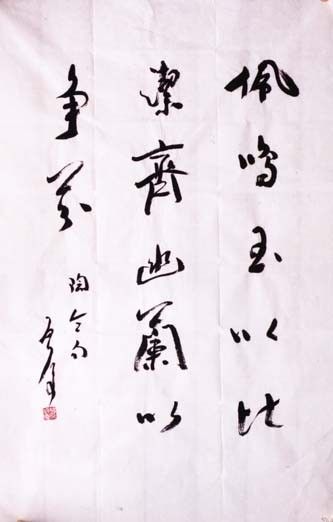 佩鸣玉以比
潔齊幽蘭以
争芬
陶令句